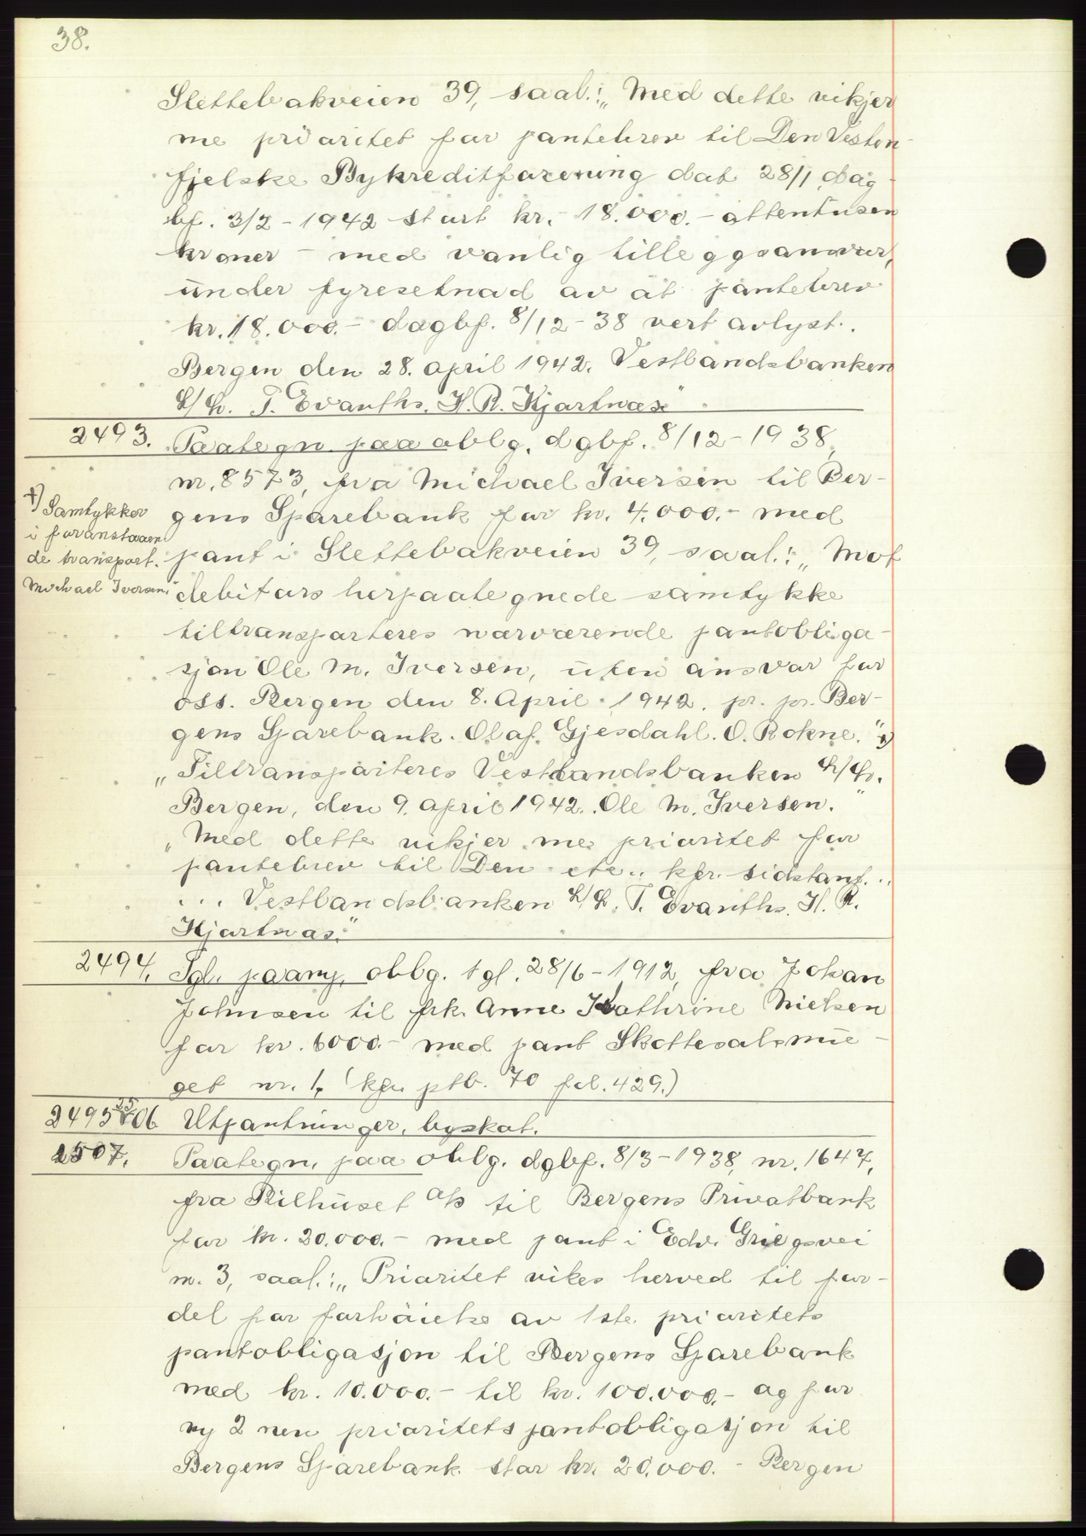 38.
Slettebakveien 39, saal.: „Med dette vikjer
me prioritet for pantebrev til Den Vesten-
fjelske Bykreditforening dat 28/1, dag-
bf. 3/2-1942 stort kr. 18.000.- attentusen
kroner - med vanlig tilleggsansvar,
under fyresetnad av at pantebrev
kr. 18.000.- dagbf. 8/12-38 vert avlyst.
Bergen den 28. april 1942. Vestlandsbanken
L/L. T. Evanths. H. R. Kjartnæs"
2493. Paategn. paa oblg. dgbf. 8/12-1938,
nr. 8573, fra Michael Iversen til Ber-
gens Sparebank for kr. 4.000.- med
pant i Slettebakveien 39, saal.: „Mot
debitors herpaategnede samtykke
tiltransporteres nærværende pantobliga-
sjon Ole M. Iversen, uten ansvar for
oss. Bergen den 8. April 1942. pr. pr. Ber-
gens Sparebank. Olaf Gjesdahl. O. Rokne." x)
x) Samtykker
i foranstaaen-
de transport.
Michael Iversen"
„Tiltransporteres Vestlandsbanken L/L.
Bergen, den 9. april 1942. Ole M. Iversen."
„Med dette vikjer me prioritet for
pantebrev til Den etc.. kfr. sidstanf. ..
... Vestlandsbanken L/L. T. Evanths. H. R.
Kjartnæs."
2494. Tgl. paany, oblg. tgl. 28/6-1912, fra Johan
Johnsen til frk. Anne Kathrine Nielsen
for kr. 6000.- med pant Skottesalsmue-
get nr. 1, (kfr. ptb. 70 fol. 429.)
2495-2506 Utpantninger, byskat.
2507. Paategn. paa oblg. dgbf. 8/3-1938, nr. 1647,
fra Bilhuset A/S til Bergens Privatbank
for kr. 20.000.- med pant i Edv. Griegsvei
nr. 3, saal.: „Prioritet vikes herved til for-
del for forhöielse av 1ste prioritets
pantobligasjon til Bergens Sparebank
med kr. 10.000.- til kr. 100.000.- og for
ny 2nen prioritets pantobligasjon til
Bergens Sparebank stor kr. 20.000.- Bergen